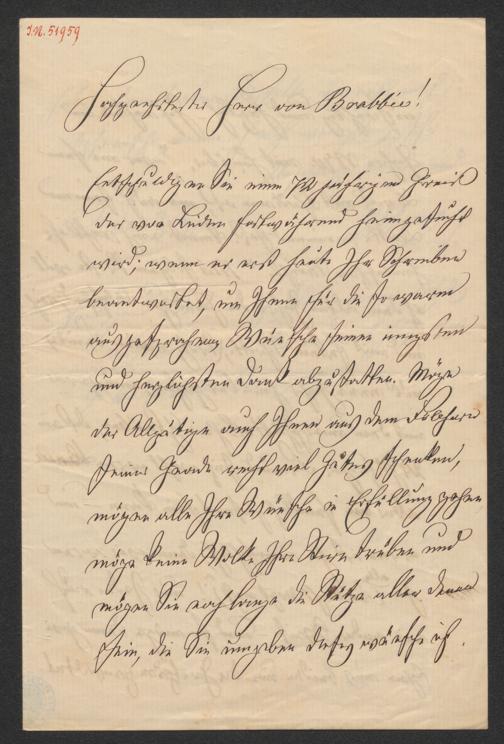 J.N. 51959
Hochverehrtester Herr von Brabbée!
Entschuldigen Sie einen 72 jährigen Greis
der von Leiden fortwährend heimgesucht
wird, wenn er erst heute Ihr Schreiben
beantwortet, um Ihnen für die so warm
ausgesprochenen Wünsche seinen innigsten
und herzlichsten Dank abzustatten. Möge
der Allgütige auch Ihnen aus dem Füllhorn
seiner Gnade recht viel Gutes schenken,
mögen alle Ihre Wünsche in Erfüllung gehen
möge keine Wolke Ihre Stirn trüben und
mögen Sie noch lange die Stütze aller denen
sein, die Sie umgeben dieses wünsche ich.